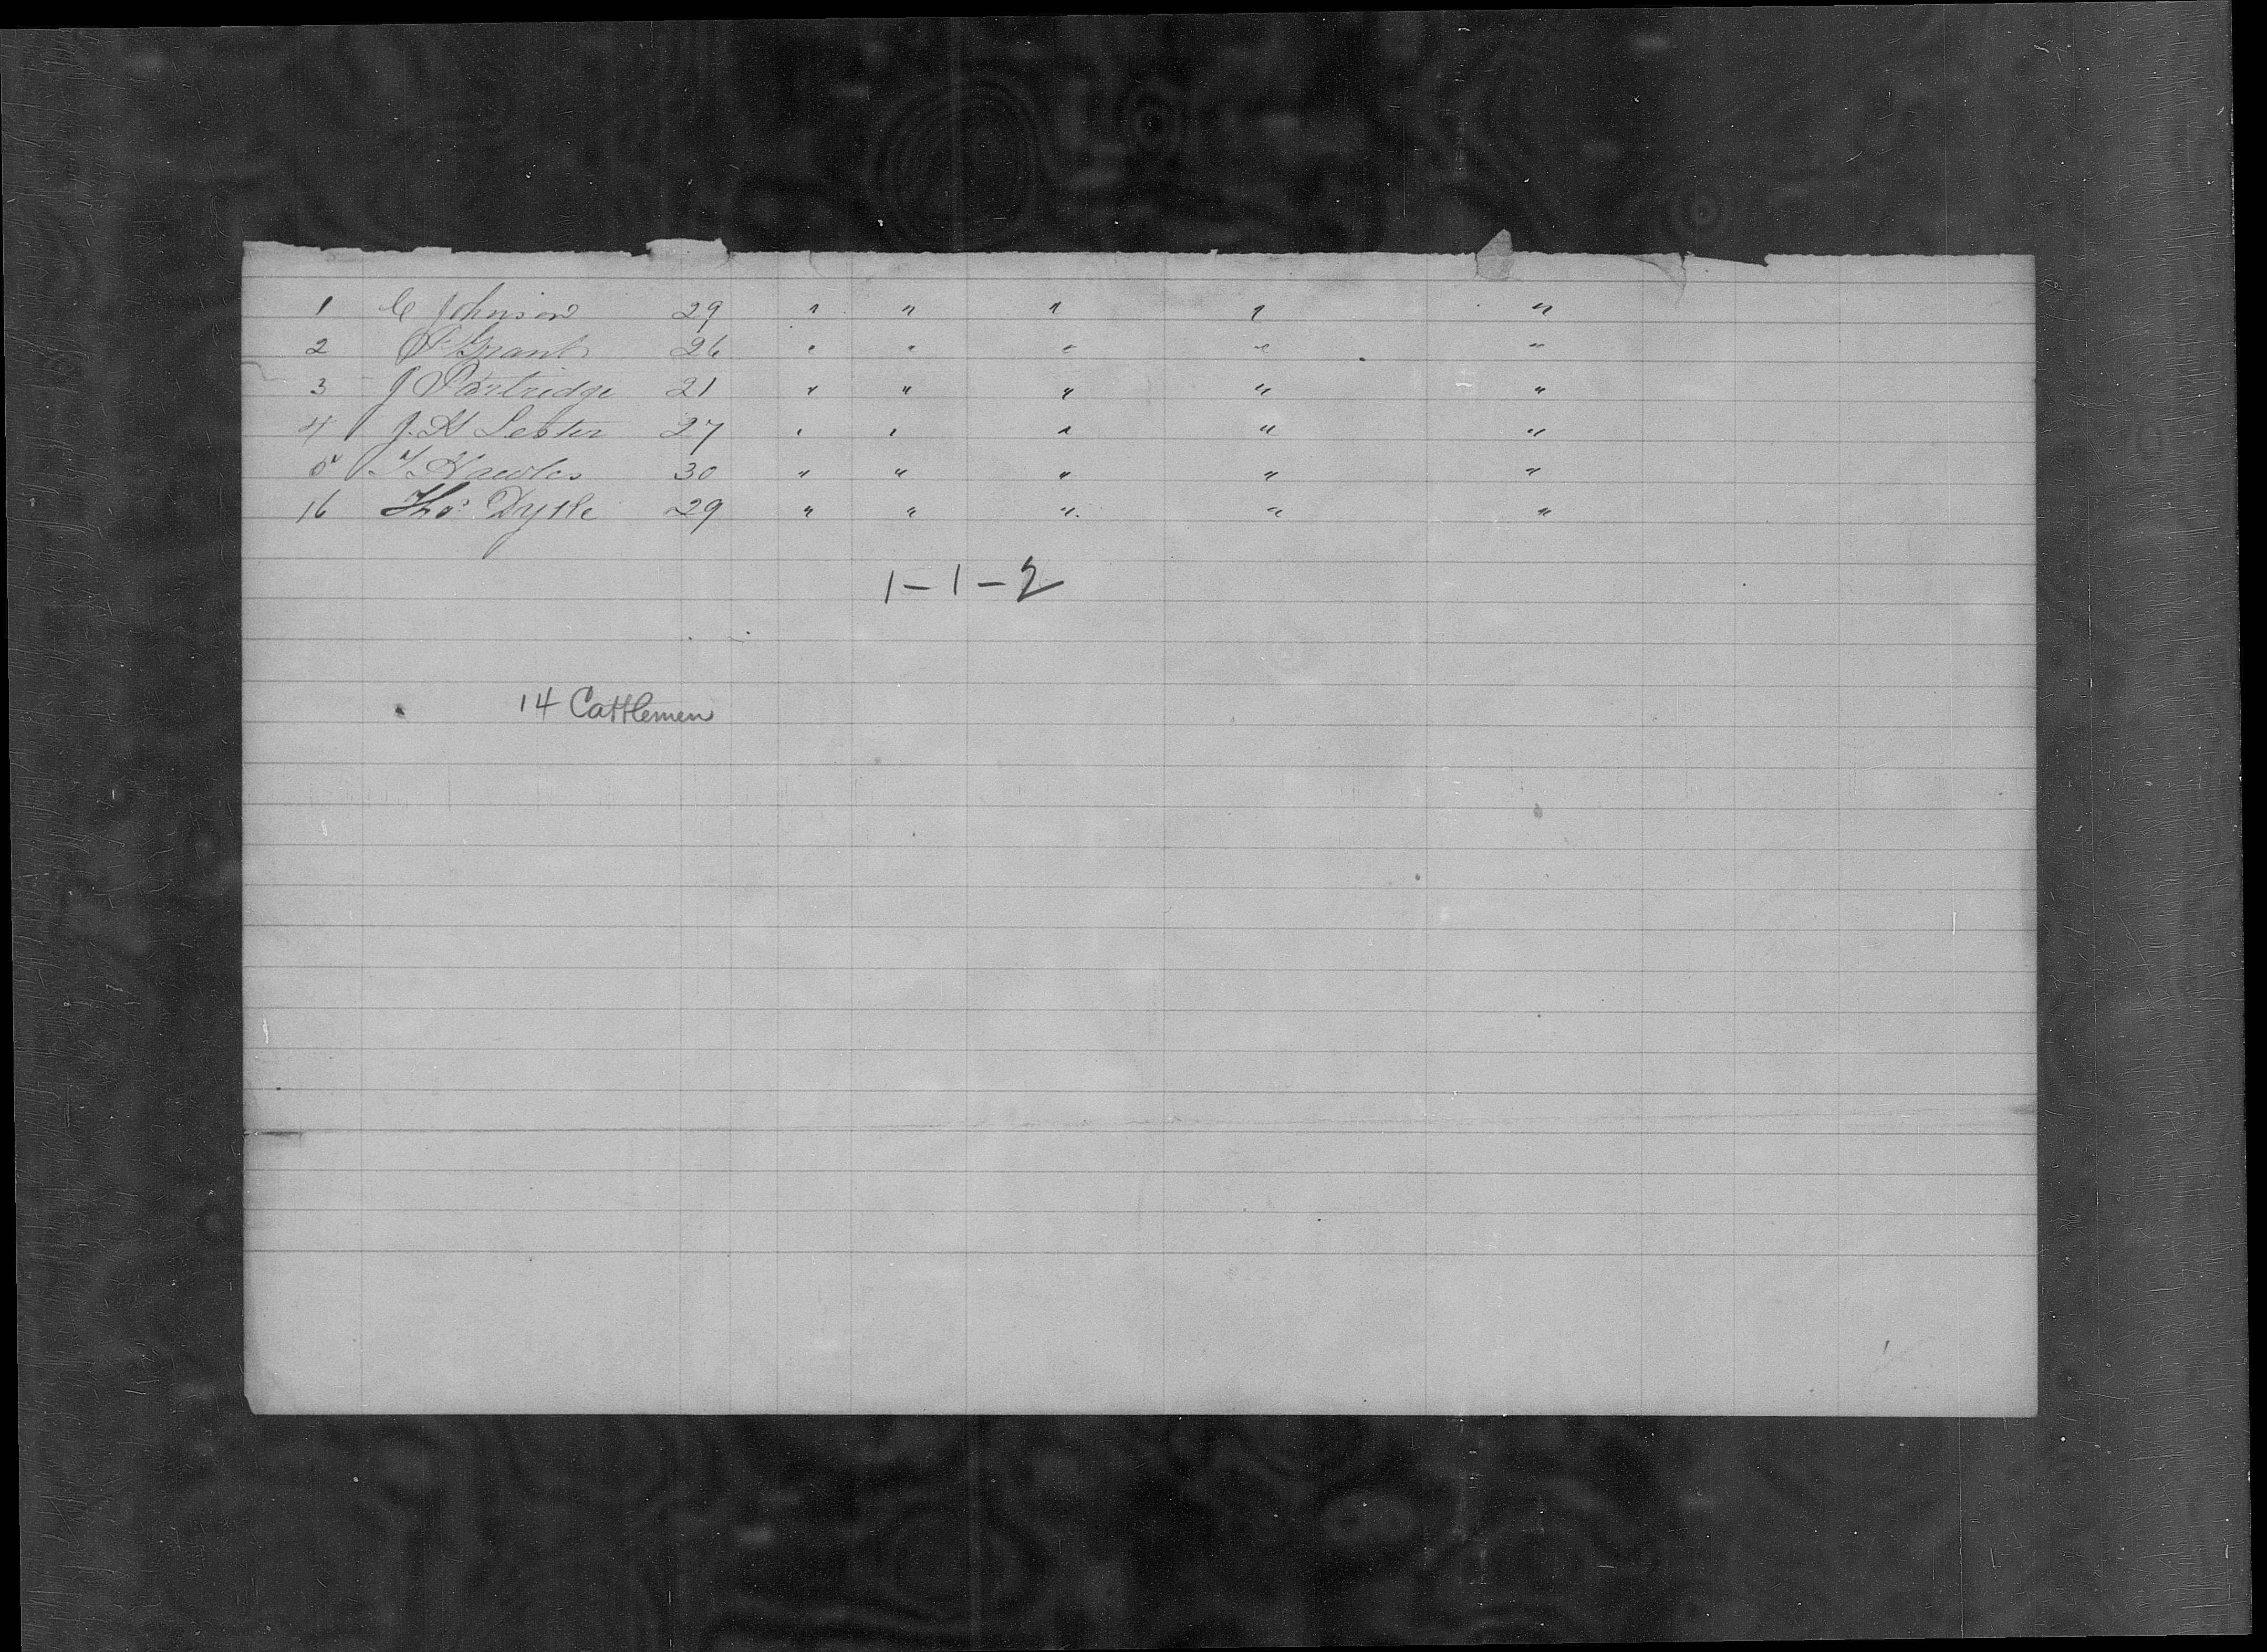 1 C Johnson 29 " " " " "
2 P Grant 26 " " " " "
3 J Partridge 21 " " " " "
4 J. H Lester 27 " " " " "
5 T. Hawles 30 " " " " "
16 Thos Dyke 29 " " " " "
1-1-2
14 Cattlemen